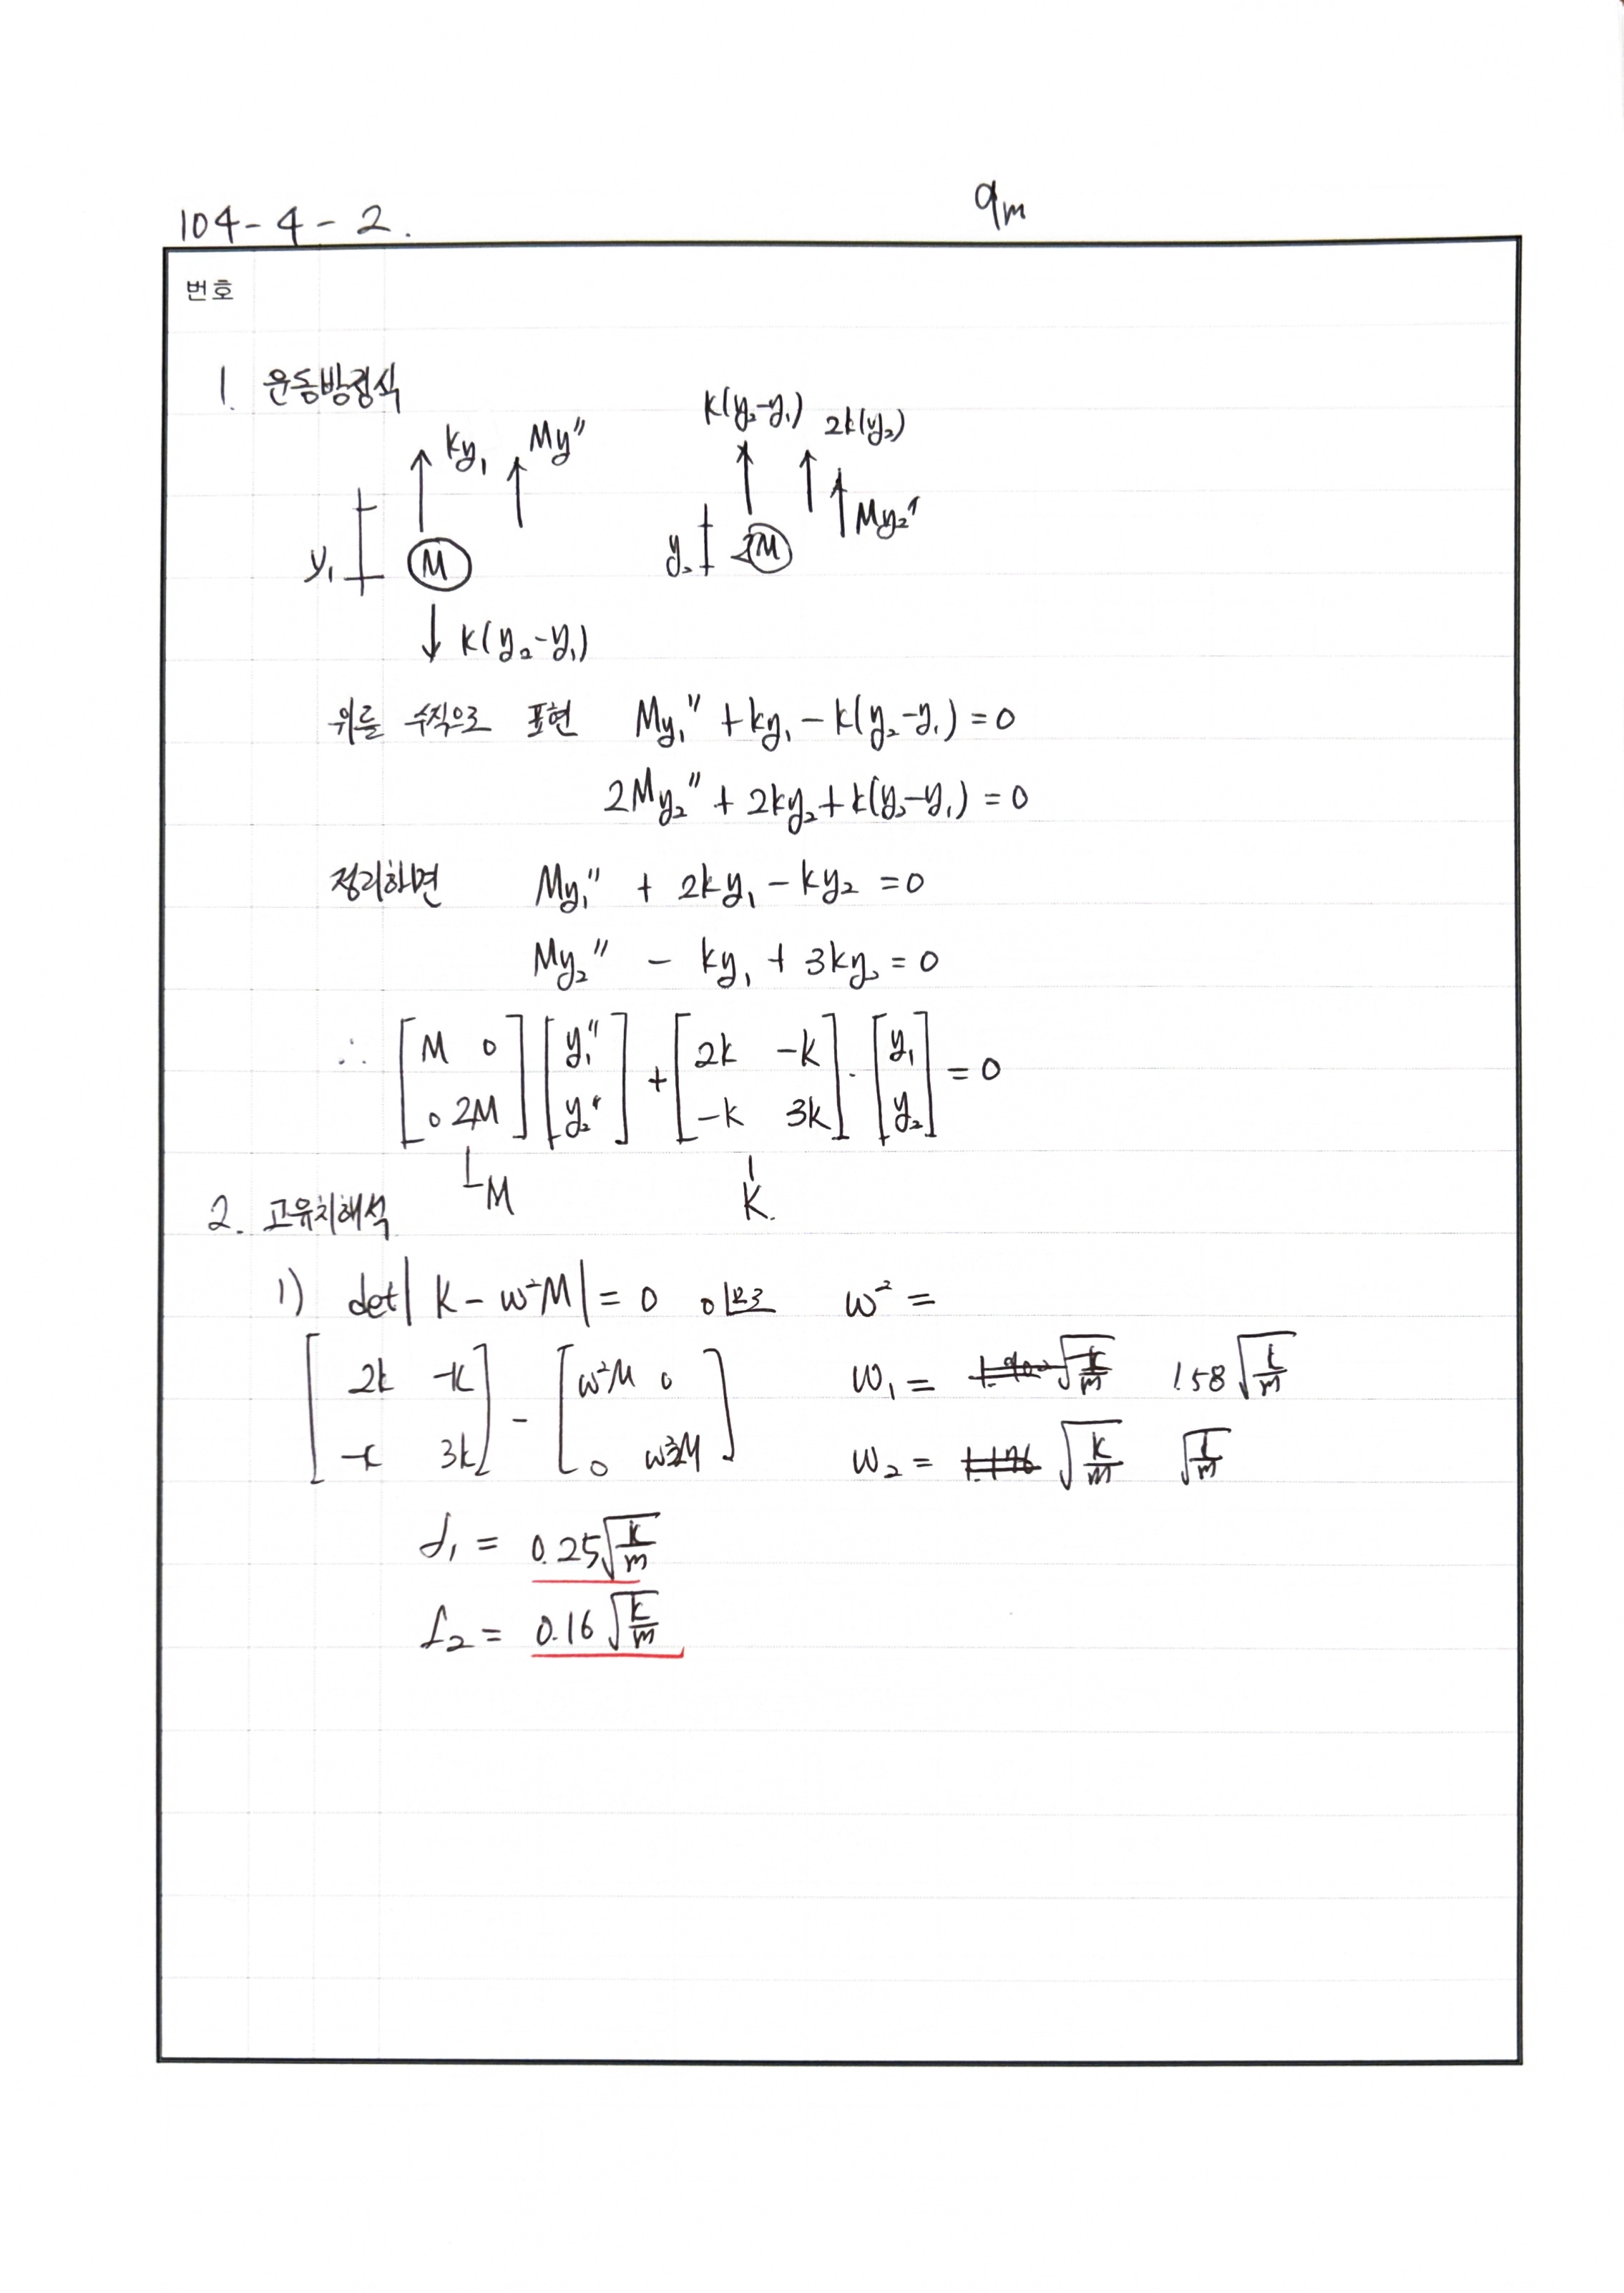 104-4-2.
9m
번호
1. 운동방정식
ky₁ My″ k(y₂-y₁) 2k(y₂)
y₁ M y₂ 2M My₂″
k(y₂-y₁)
위를 수식으로 표현 My₁″ + ky₁ - k(y₂-y₁) = 0
2My₂″ + 2ky₂ + k(y₂-y₁) = 0
정리하면 My₁″ + 2ky₁ - ky₂ = 0
My₂″ - ky₁ + 3ky₂ = 0
∴ [M 0; 0 2M] [y₁″; y₂″] + [2k -k; -k 3k] · [y₁; y₂] = 0
M K.
2. 고유치해석
1) det| K - ω²M | = 0 이므로 ω² =
[2k -k; -k 3k] - [ω²M 0; 0 ω²2M]
ω₁ = √(k/m) 1.58√(k/m)
ω₂ = √(k/m) √(k/m)
f₁ = 0.25√(k/m)
f₂ = 0.16√(k/m)